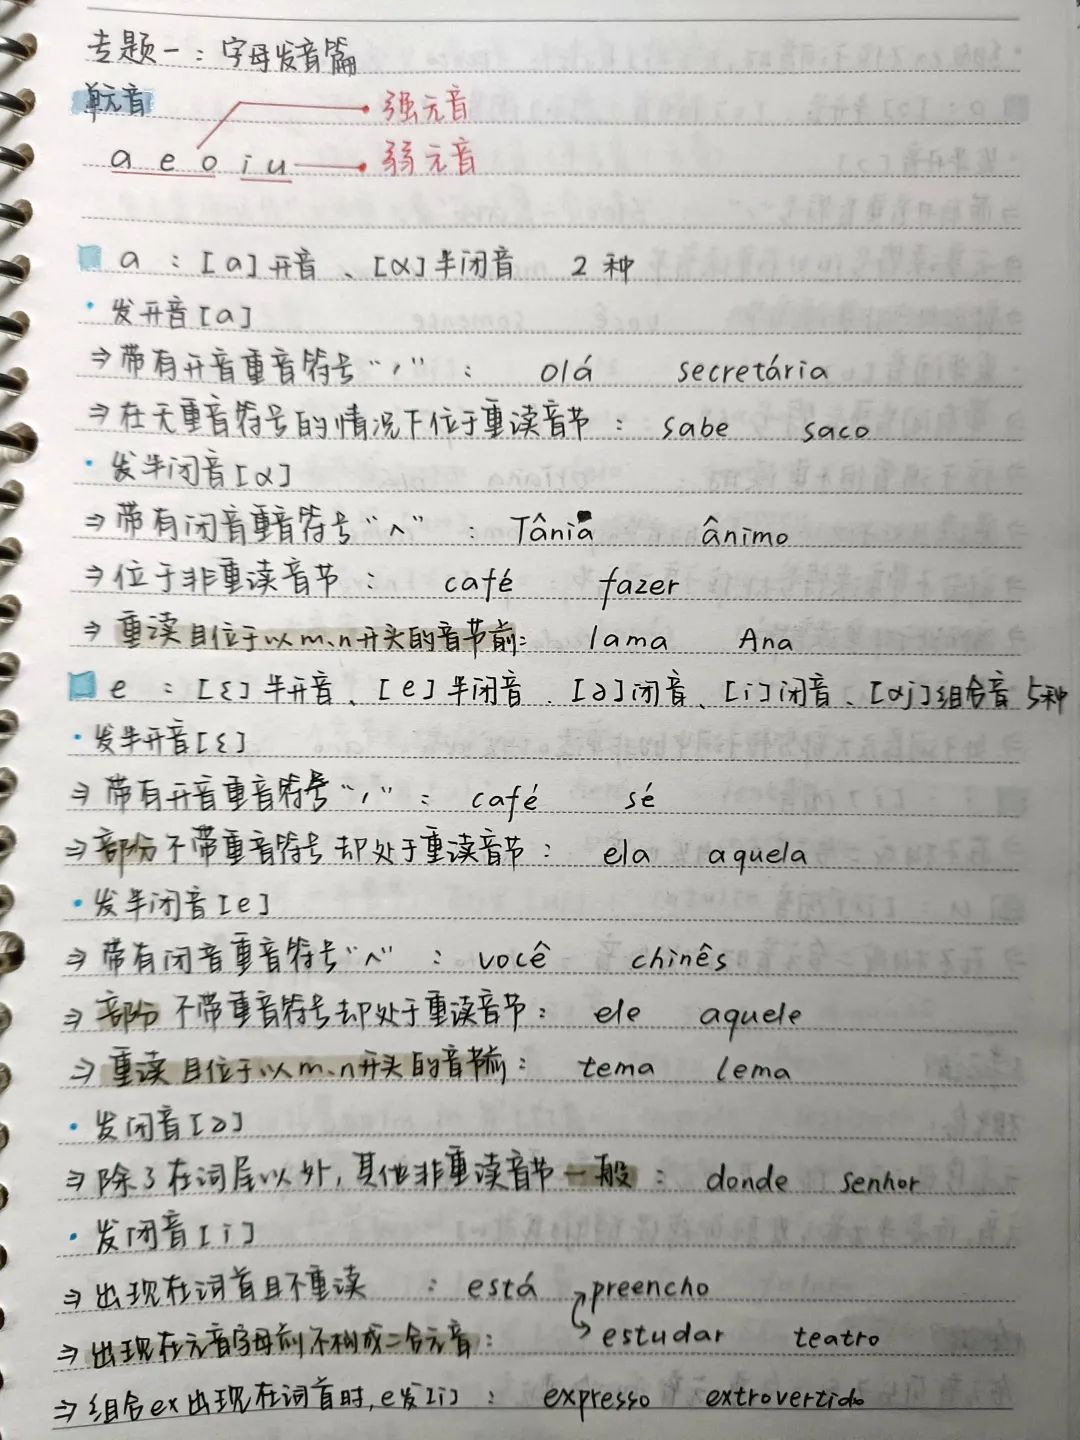 专题一：字母发音篇
单元音
强元音
a e o i u 弱元音
a ：[a]开音、[ɑ]半闭音 2种
· 发开音[a]
⇒带有开音重音符号“ˊ” ： olá secretária
⇒在无重音符号的情况下位于重读音节： sabe saco
· 发半闭音[ɑ]
⇒带有闭音重音符号“^” ： Tânia ânimo
⇒位于非重读音节： café fazer
⇒重读且位于以m、n开头的音节前： lama Ana
e ：[ε]半开音、[e]半闭音、[ə]闭音、[i]闭音、[ɑj]组合音 5种
· 发半开音[ε]
⇒带有开音重音符号“ˊ” ： café sé
⇒部份不带重音符号却处于重读音节： ela aquela
· 发半闭音[e]
⇒带有闭音重音符号“^” ： você chinês
⇒部份不带重音符号却处于重读音节： ele aquele
⇒重读且位于以m、n开头的音节前： tema lema
· 发闭音[ə]
⇒除了在词尾以外，其他非重读音节一般： donde senhor
· 发闭音[i]
⇒出现在词首且不重读 ： está preencho
⇒出现在元音字母前不构成二合元音： estudar teatro
⇒组合ex出现在词首时，e发[i]： expresso extrovertido